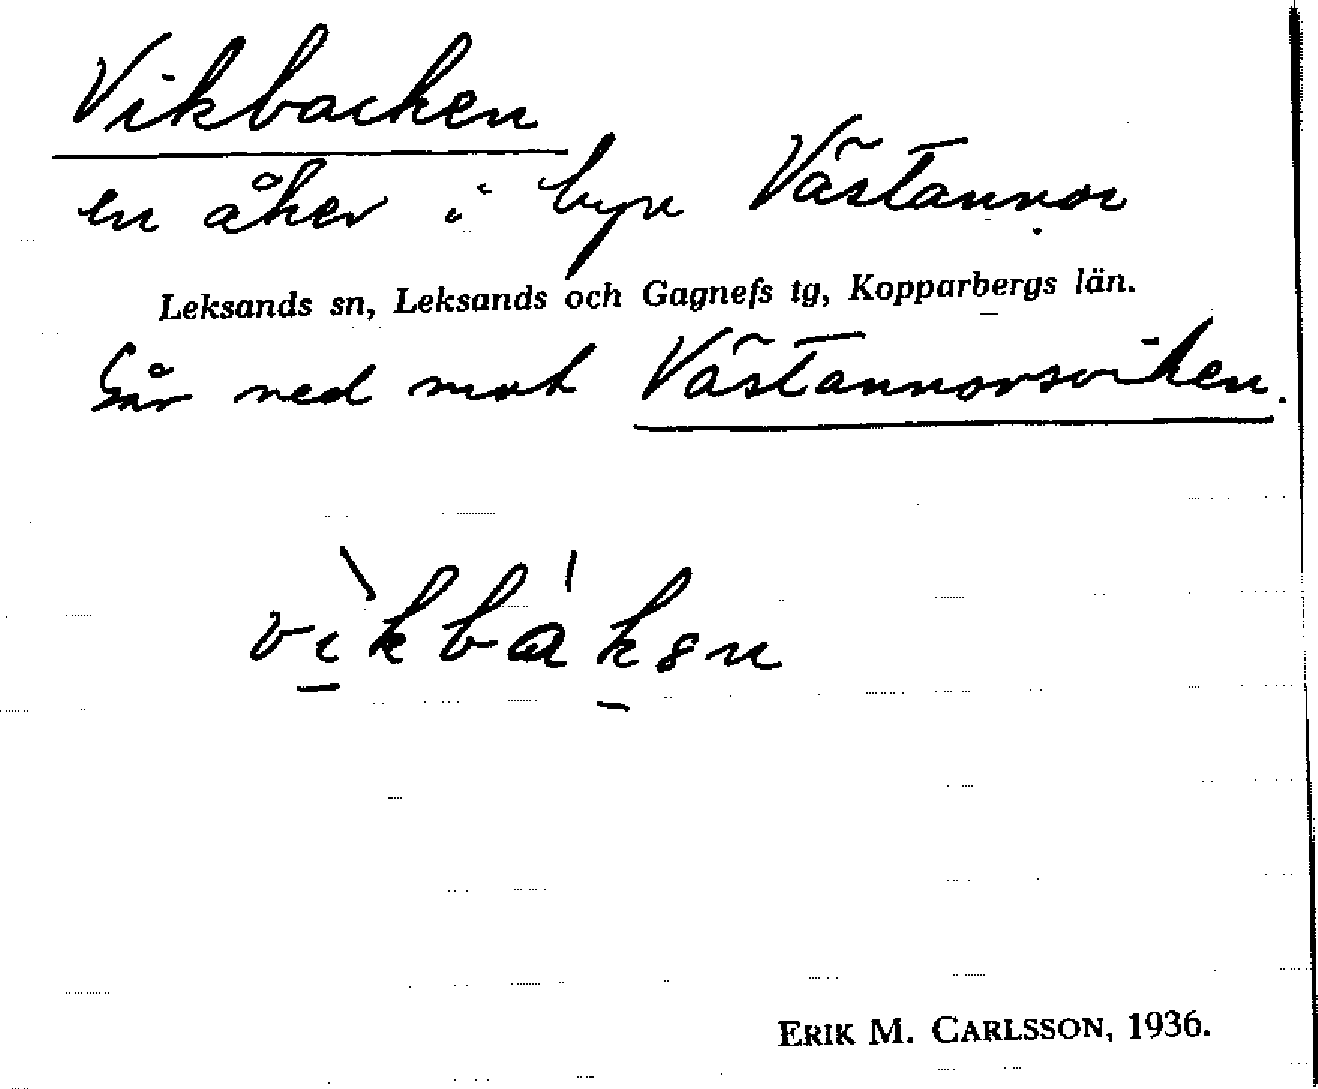 Vikbacken
en åker i byn Västannor
Leksands sn, Leksands och Gagnefs tg, Kopparbergs län.
Går ned mot Västannorsviken.
vìkbáksn
ERIK M. CARLSSON, 1936.